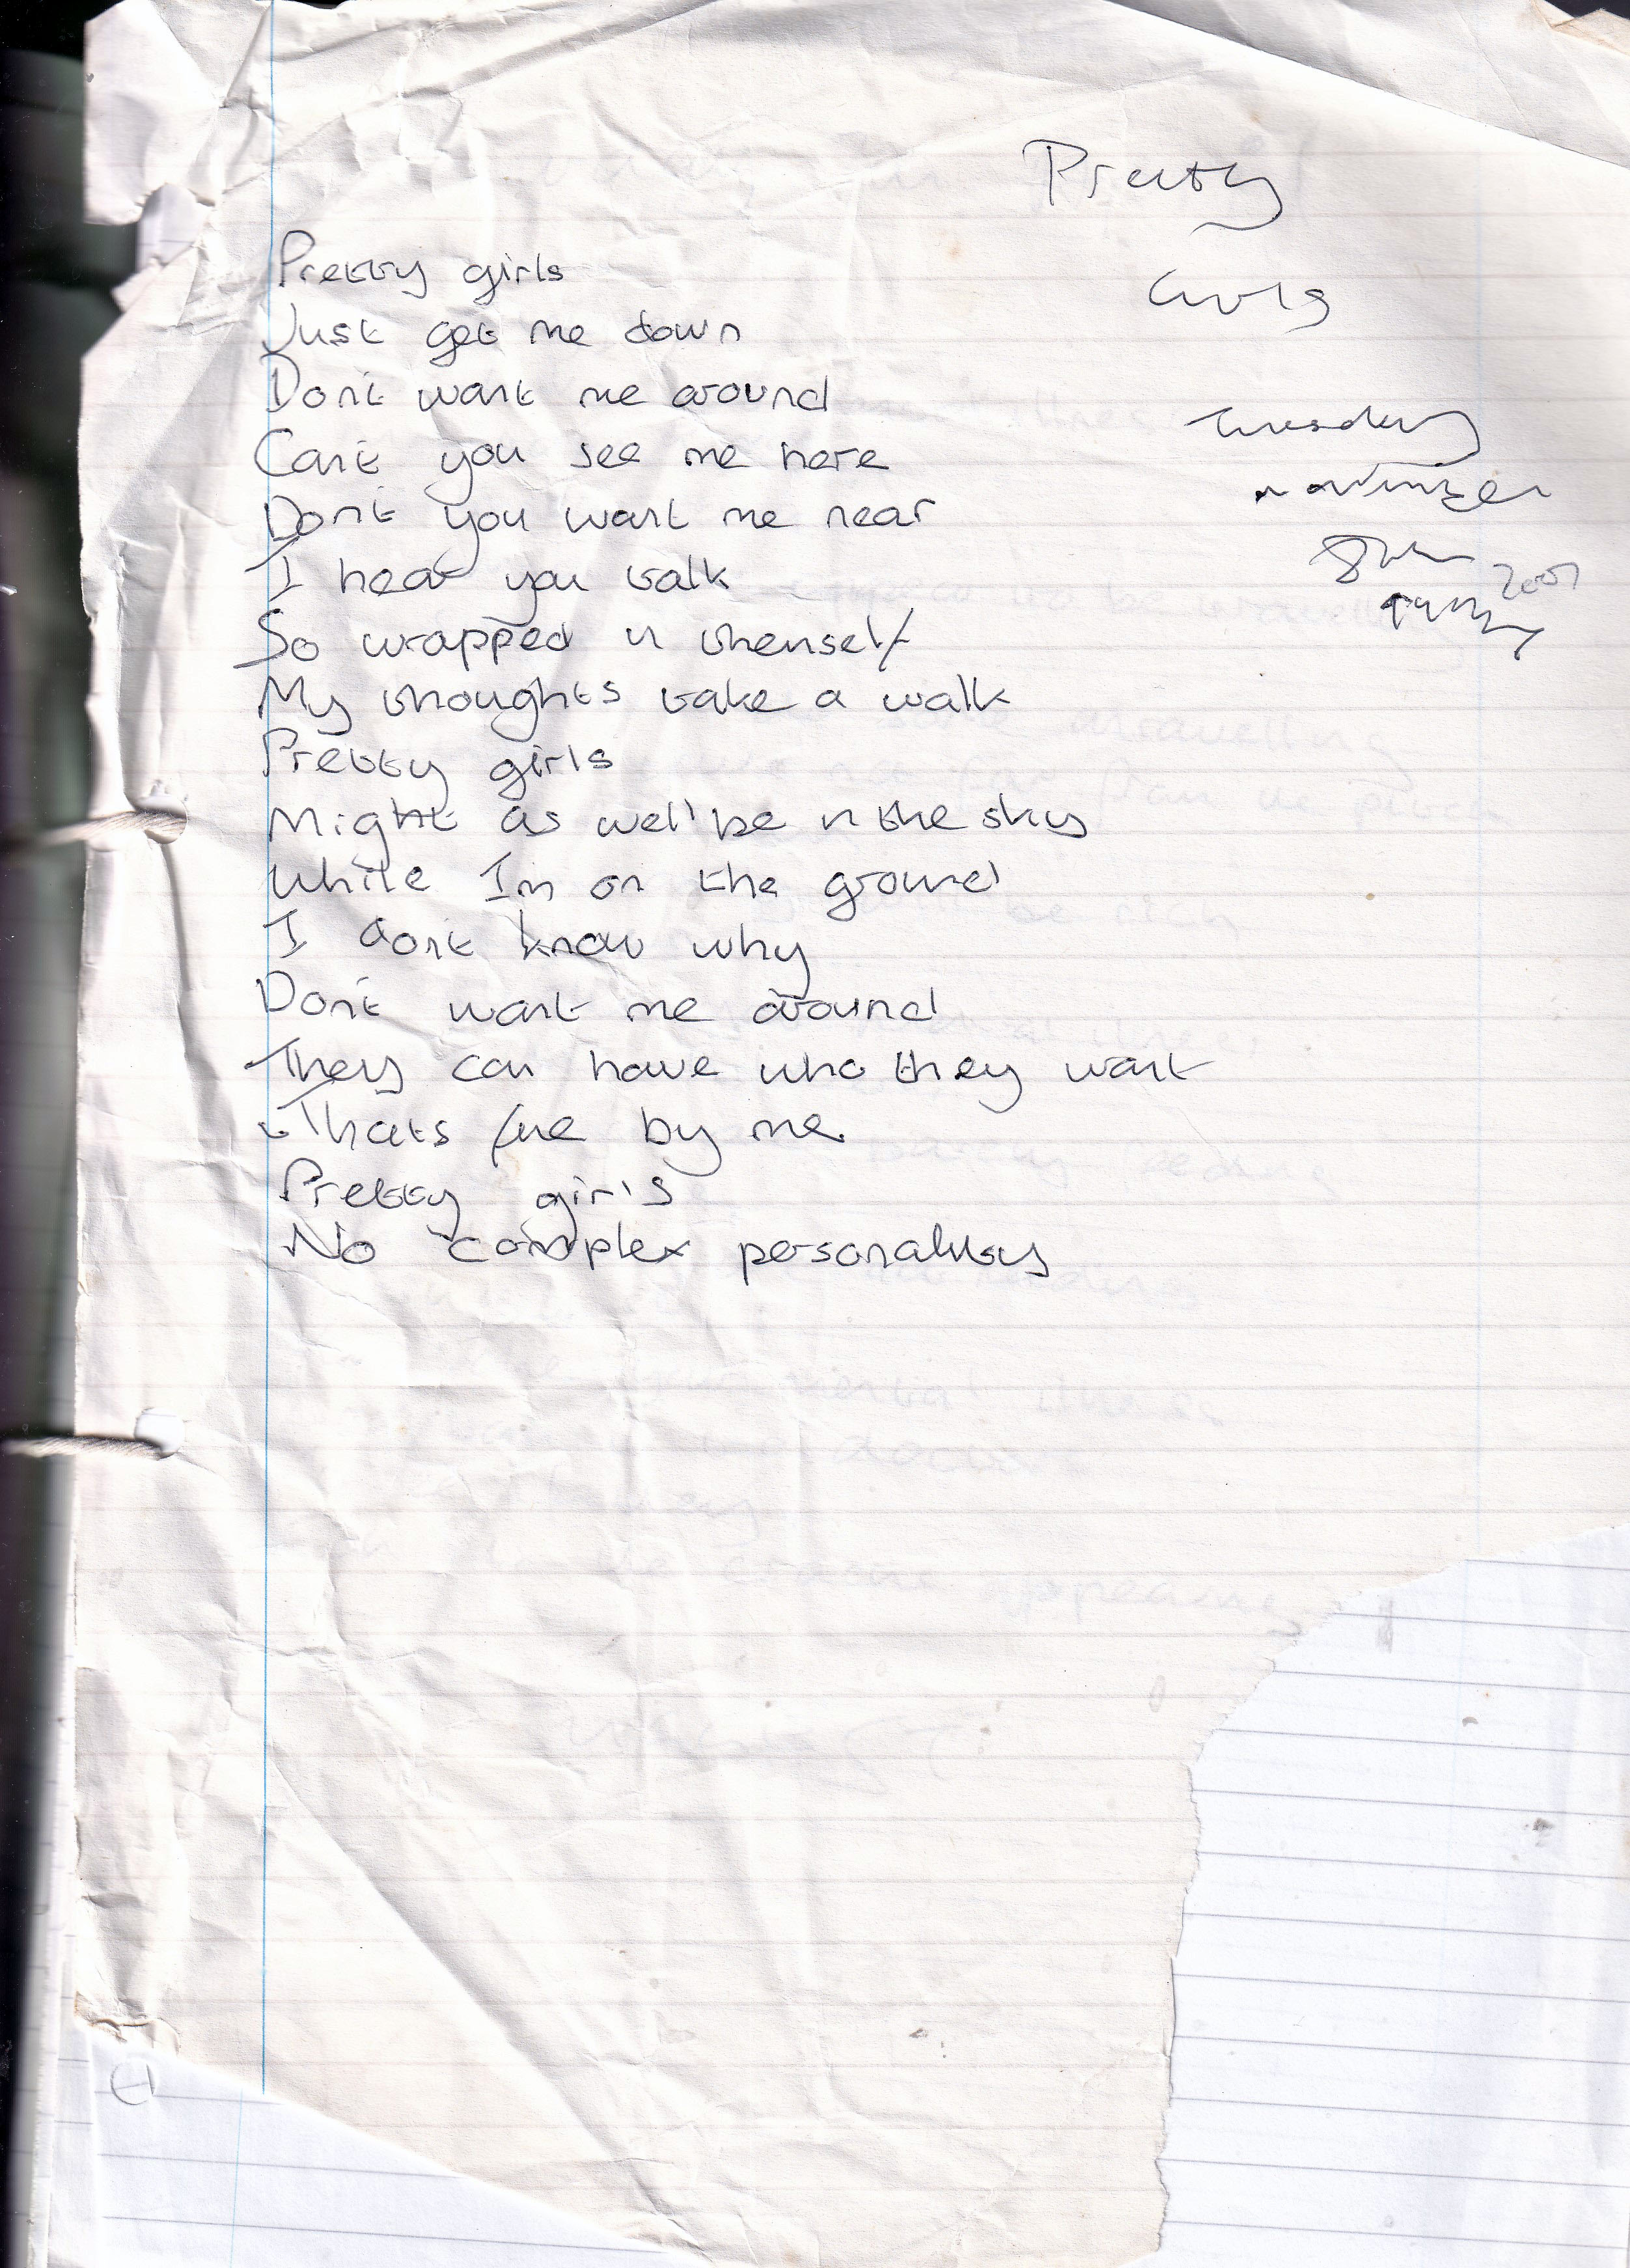 Pretty
Girls
Pretty girls
Just get me down
Don't want me around
Can't you see me here
Don't you want me near
I hear you talk
So wrapped in themself
My thoughts take a walk
Pretty girls
Might as well be in the sky
While Im on the ground
I dont know why
Don't want me around
They can have who they want
Thats fine by me
Pretty girls
No complex personality
Tuesday
November
2001